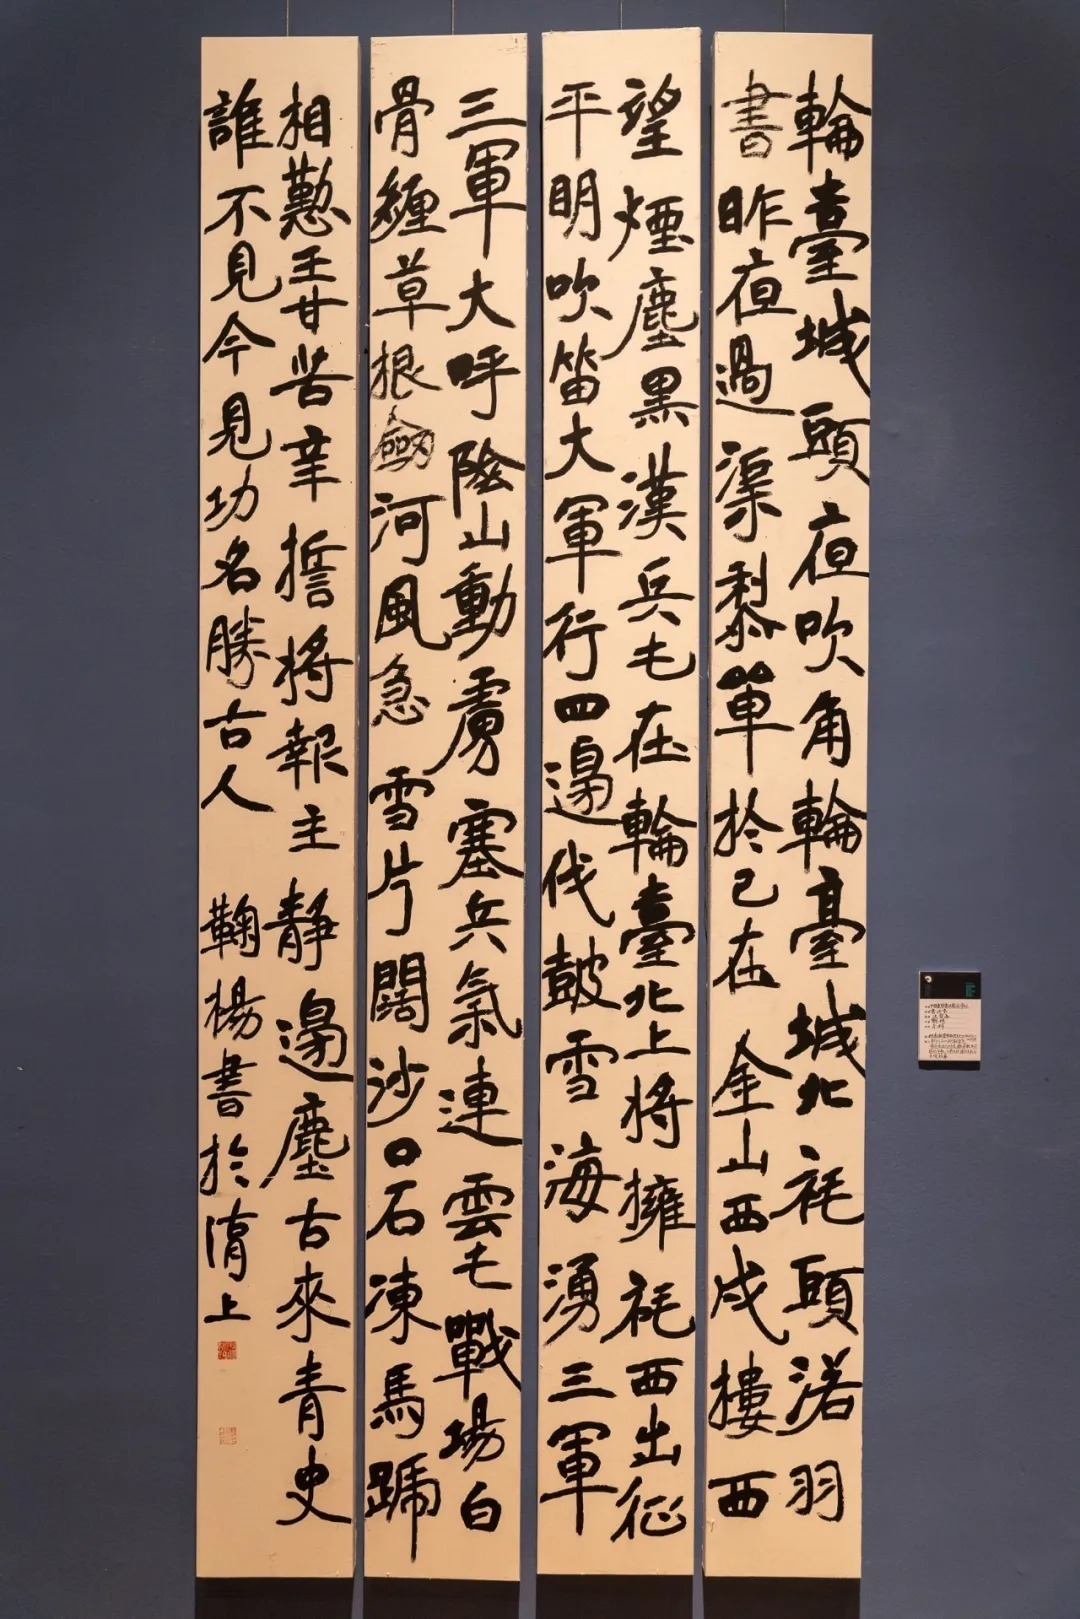 輪臺城頭夜吹角輪臺城北旄頭落羽
書昨夜過渠黎單於已在金山西戍樓西
望煙塵黑漢兵屯在輪臺北上將擁旄西出征
平明吹笛大軍行四邊伐鼓雪海湧三軍
三軍大呼陰山動虜塞兵氣連雲屯戰場白
骨纏草根劍河風急雪片闊沙口石凍馬蹄
相懃王甘苦辛誓將報主靜邊塵古來青史
誰不見今見功名勝古人 鞠楊書於淯上